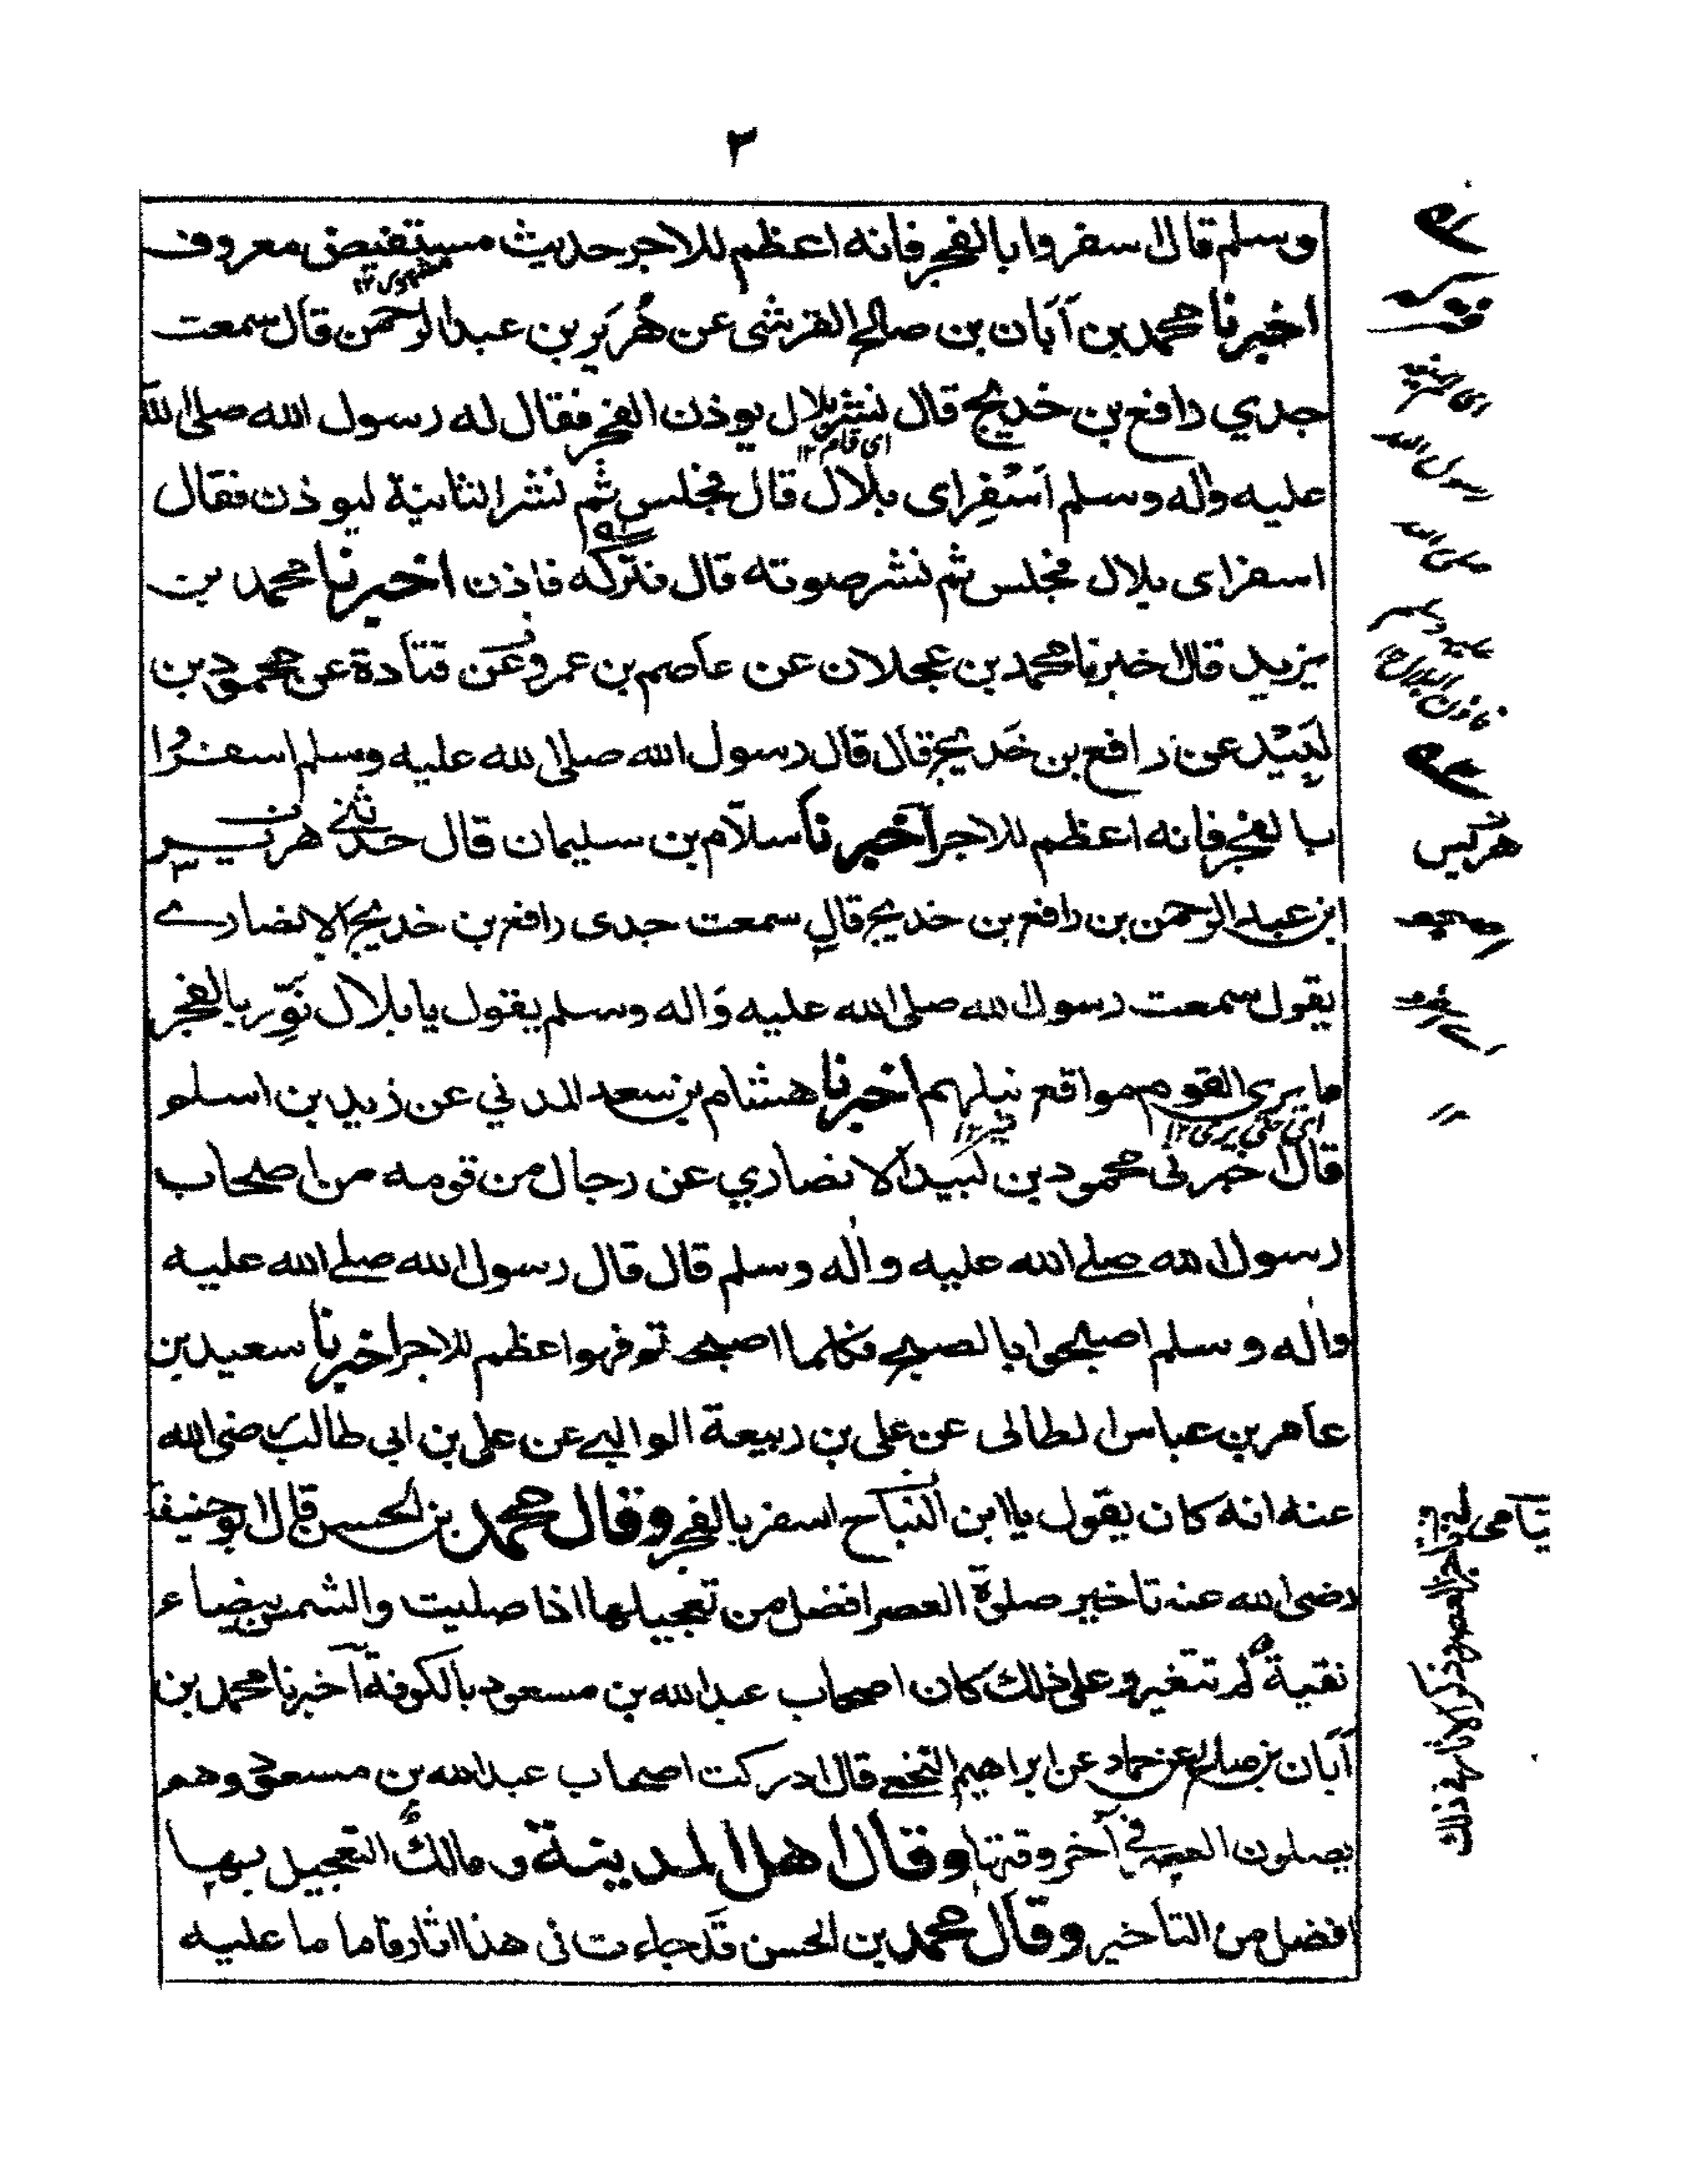 ٣
وسلم قال اسفروا بالفجر فانه اعظم للاجر حديث مستفيض معروف
اخبرنا محمد بن اَبَان بن صالح القرشى عن هُرَيرِ بن عبد الرحمن قال سمعت
جدي رافع بن خديج قال نشر بلال يوذن الفجر فقال له رسول الله صلى الله
اى قام ١٢
عليه واله وسلم اَسْفِر اى بلال قال فجلس ثم نشر الثانية ليوذن فقال
اسفر اى بلال فجلس ثم نشر صوته قال فتركه فاذن اخبرنا محمد بن
يزيد قال اخبرنا محمد بن عجلان عن عاصم بن عمرو عَن قتادة عن محمود بن
لَبِيْد عن رافع بن خَديج قال قال رسول الله صلى الله عليه وسلم اسفروا
بالفجر فانه اعظم للاجر اخبرنا سلاّم بن سليمان قال حدثنى هرير
ابن عبد الرحمن بن رافع بن خديج قال سمعت جدى رافع بن خديج الانصارے
يقول سمعت رسول الله صلى الله عليه وَاله وسلم يقول يا بلال نَوِّر بالفجر
ما يرى القوم مواقع نبلهم اخبرنا هشام بن سعد المدني عن زيد بن اسلم
قال اخبرنى محمود بن لَبيد الانصاري عن رجال من قومه من اصحاب
رسول الله صلے الله عليه واٰله وسلم قال قال رسول الله صلے الله عليه
واٰله وسلم اصبحوا بالصبح فكلما اصبحتم فهو اعظم للاجر اخبرنا سعيد بن
عامر بن عباس الطالى عن على بن ربيعة الوالبے عن على بن ابى طالب رضى الله
عنه انه كان يقول يا ابن النَبَّاح اسفر بالفجر وقال محمد بن الحسن قال ابو حنيفة
رضى الله عنه تاخير صلوة العصر افضل من تعجيلها اذا صليت والشمس بيضاء
نقية لم تتغير وعلى ذلك كان اصحاب عبد الله بن مسعود بالكوفة اَخبرنا محمد بن
اَبَان بن صالح عن حماد عن ابراهيم النخعے قال ادركت اصحاب عبد الله بن مسعود وهم
يصلون العصر فى آخر وقتها وقال اهل المدينة ومالك التعجيل بها
افضل من التاخير وقال محمد بن الحسن قد جاءت فى هذا اثار فاما ما عليه
اى النبى
رسول الله
صلى الله